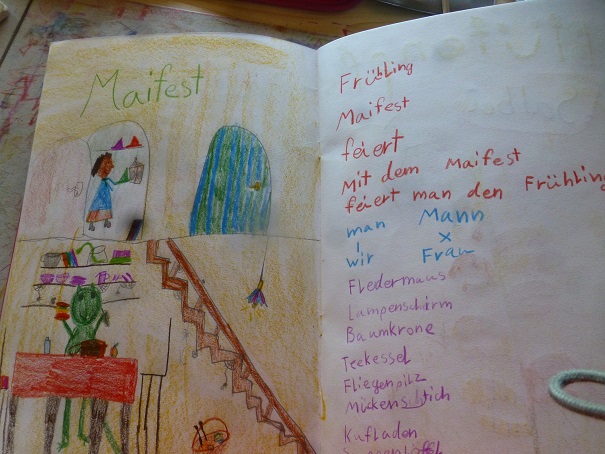 Maifest
Frühling
Maifest
feiert
Mit dem Maifest
feiert man den Frühling
man Mann
| x
wir Frau
Fledermaus
Lampenschirm
Baumkrone
Teekessel
Fliegenpilz
Mückenstich
Kaufladen